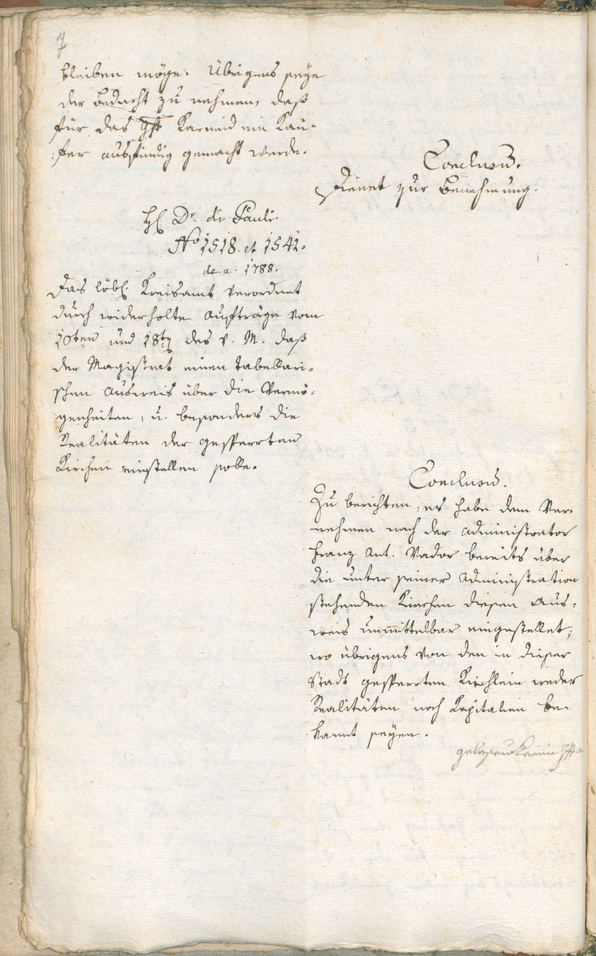 7
bleiben möge. Übrigens seye
der Bedacht zu nehmen, daß
für das Karneid ein Käu-
fer ausfindig gemacht werde.
Conclusū.
Dienet zur Benehmung.
H Dr. di Pauli.
No 1518. et 1541.
de a: 1788.
Das löbl Kreisamt verordnet
durch widerholte Aufträge vom
10ten und 18ten des v. M. daß
der Magistrat einen tabellari-
schen Ausweis über die Vermö-
genheiten, u. besonders die
Realitäten der gesperrten
Kirchen einstellen solle.
Conclusū.
Zu berichten: es habe dem Ver-
nehmen nach der Administrator
Franz Ant. Vador bereits über
die unter seiner Administration
stehenden Kirchen diesen Aus-
weis unmittelbar eingestellet,
wo übrigens von den in dieser
Stadt gesperrten Kirchlein weder
Realitäten noch Kapitalien be-
kannt seyen.
gelesen